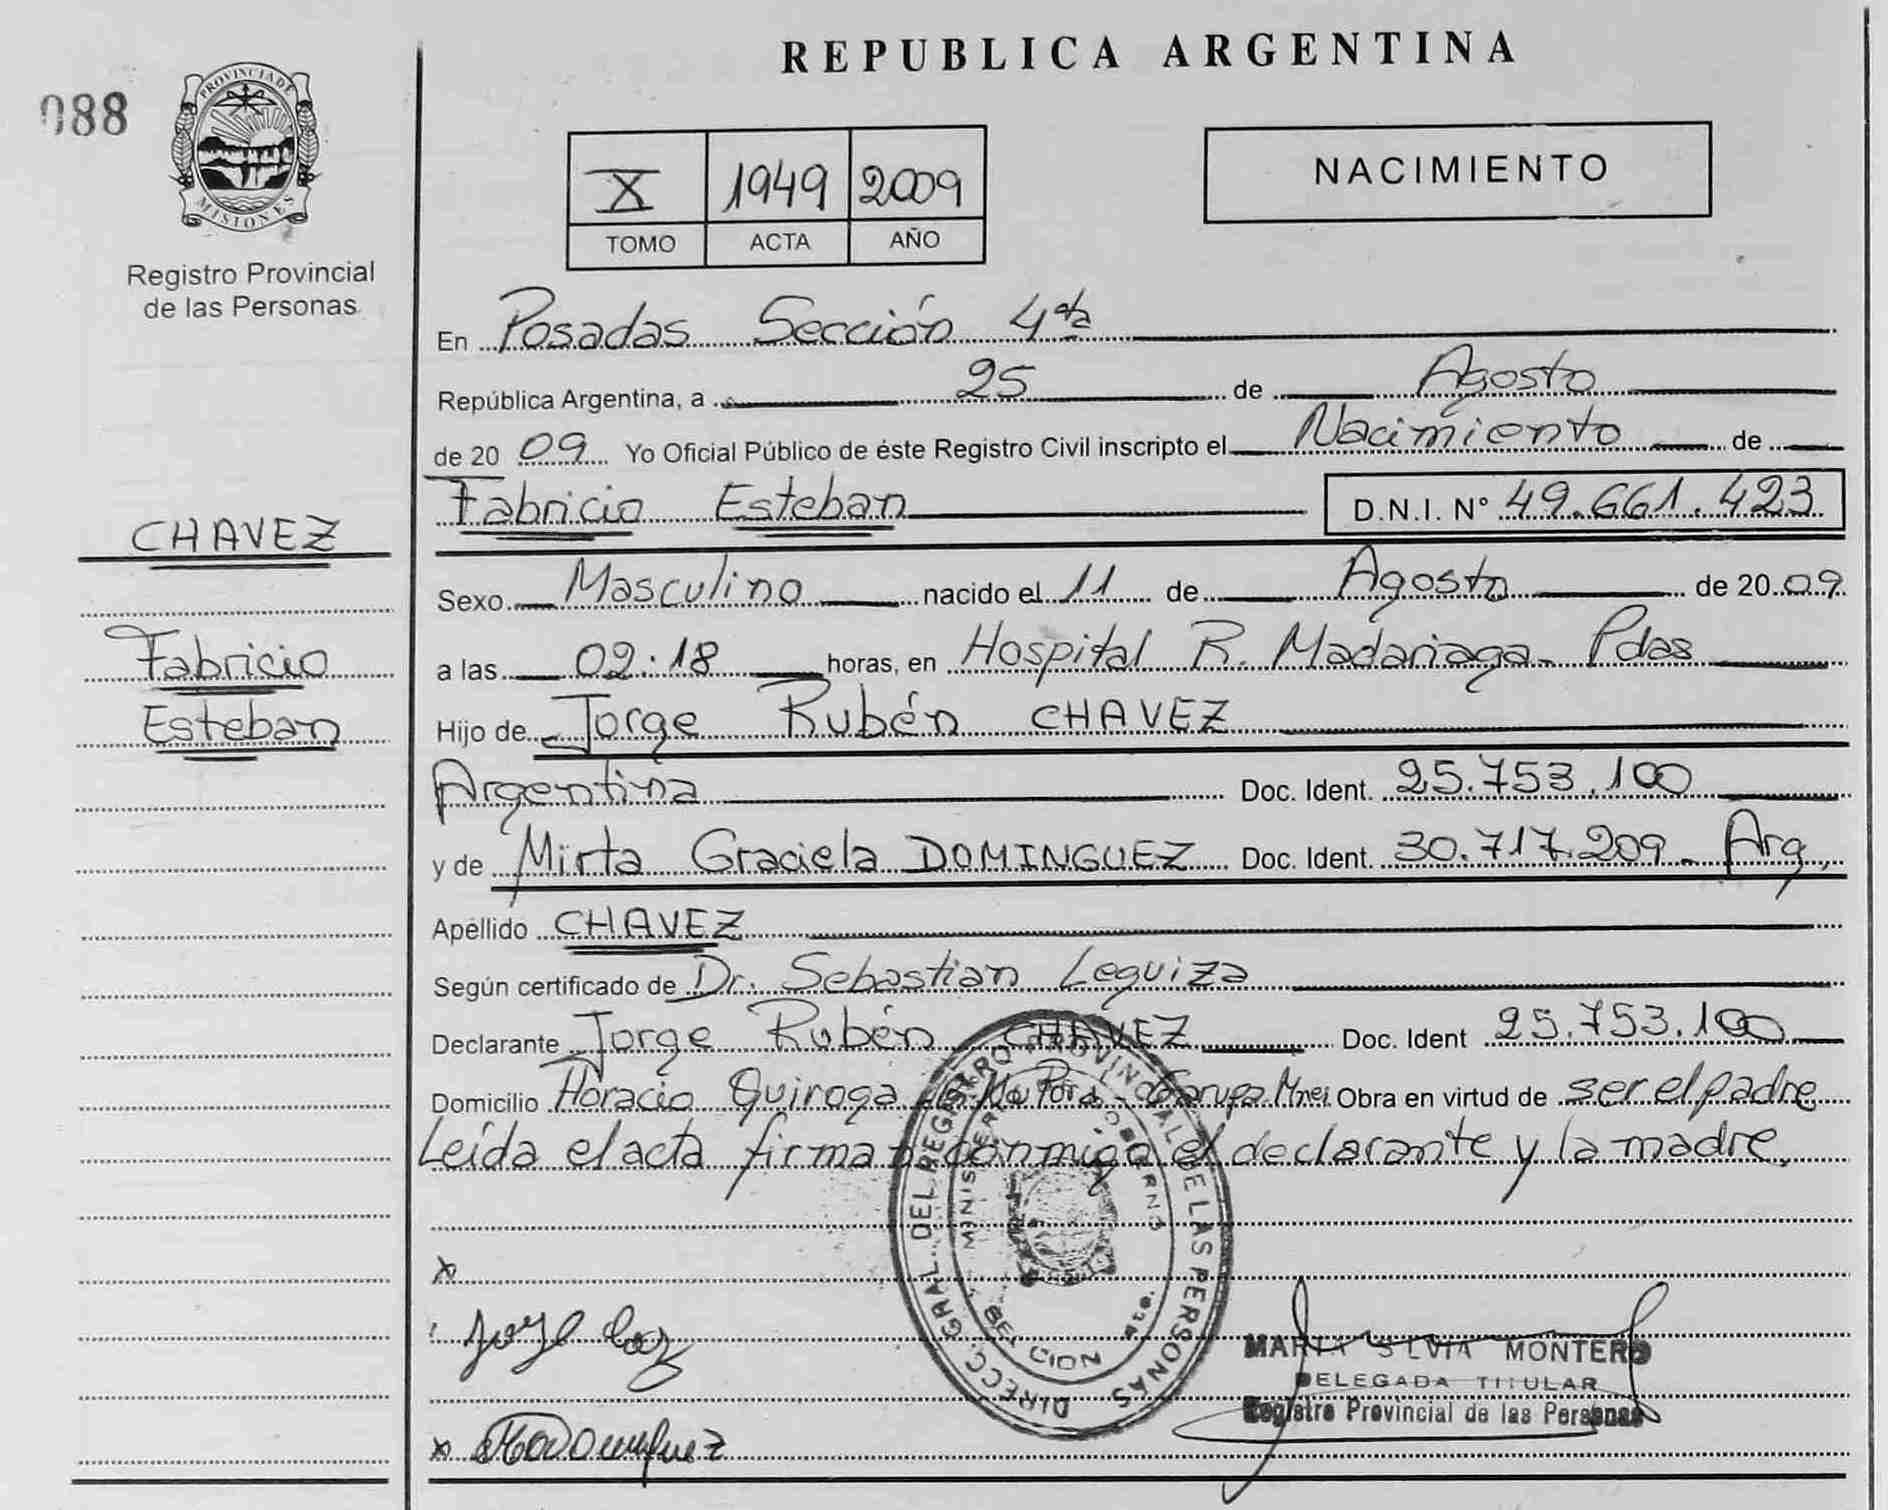 REPUBLICA ARGENTINA
088
PROVINCIA DE
MISIONES
Registro Provincial
de las Personas
X 1949 2009
TOMO ACTA AÑO
NACIMIENTO
En Posadas Sección 4ta
República Argentina, a 25 de Agosto
de 20 09 Yo Oficial Público de éste Registro Civil inscripto el Nacimiento de
Fabricio Esteban D.N.I. N° 49.661.423
CHAVEZ
Fabricio
Esteban
Sexo Masculino nacido el 11 de Agosto de 20 09
a las 02:18 horas, en Hospital R. Madariaga - Pdas
Hijo de Jorge Rubén CHAVEZ
Argentina Doc. Ident. 25.753.100
y de Mirta Graciela DOMINGUEZ Doc. Ident. 30.717.209 - Arg.
Apellido CHAVEZ
Según certificado de Dr. Sebastian Leguiza
Declarante Jorge Rubén CHAVEZ Doc. Ident 25.753.100
Domicilio Horacio Quiroga Porá - Garupa Mnes Obra en virtud de ser el padre
Leída el acta firman conmigo el declarante y la madre.
DIRECC. GRAL. DEL REGISTRO PROVINCIAL DE LAS PERSONAS
x
x
MARIA SILVIA MONTERO
DELEGADA TITULAR
Registro Provincial de las Personas